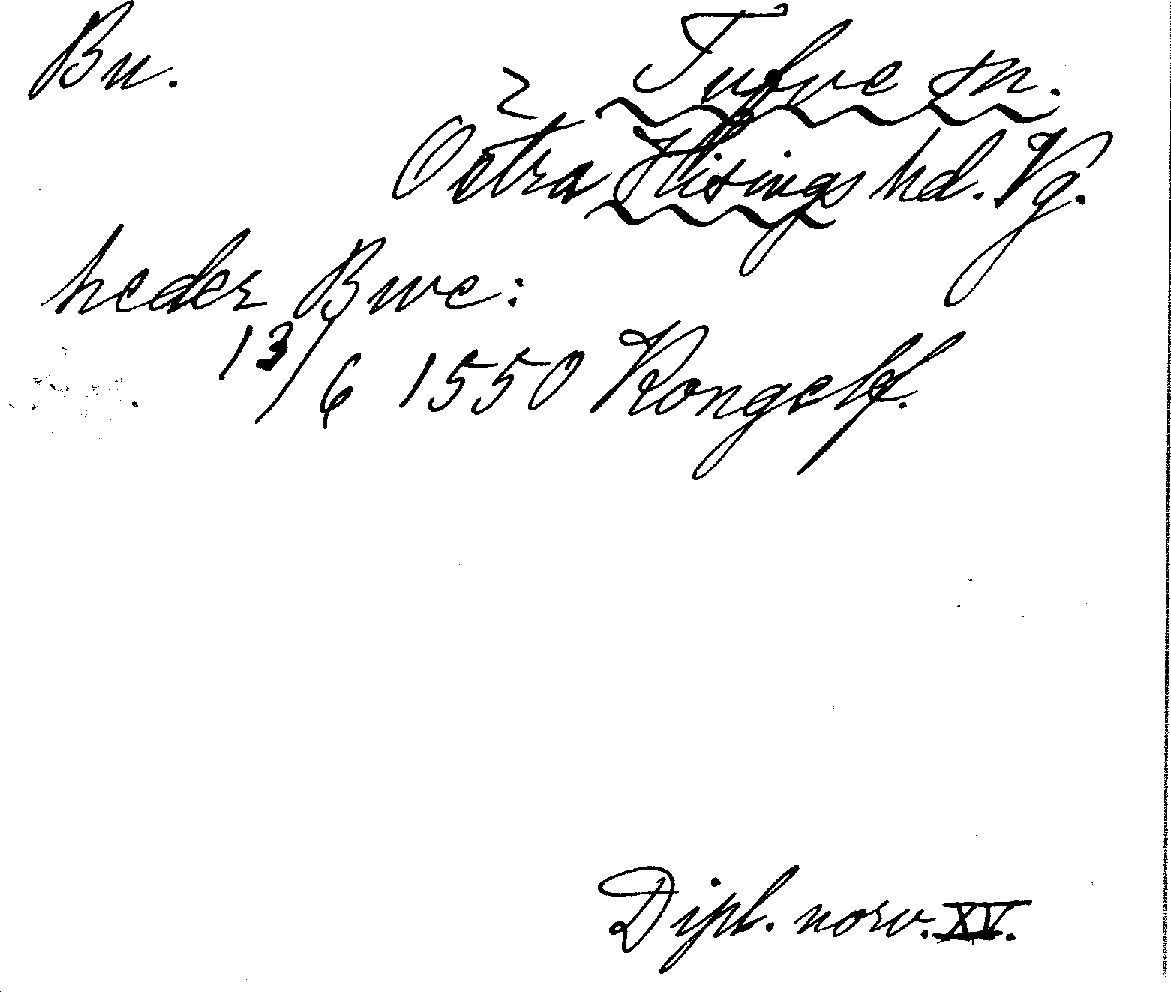 Bn. Tufve sn.
2
Östra Hisings hd. Vg.
heder Bwe:
13/6 1550 Kongelf.
Dipl. norv. XV.